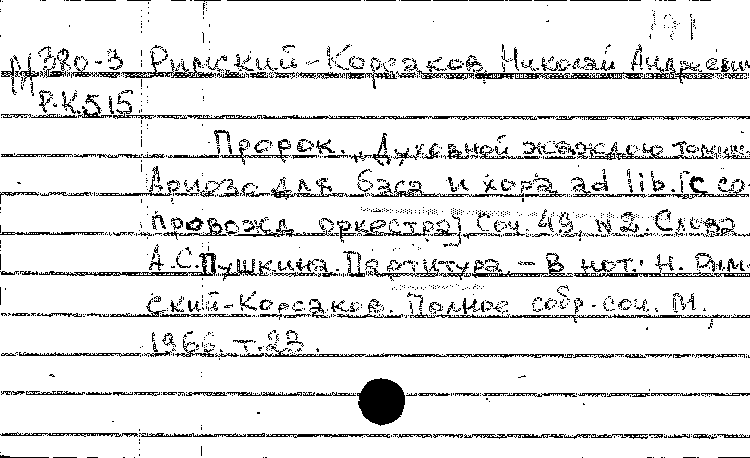 191
М 380-3 Римский-Корсаков, Николай Андреевич
Р-К.515
Пророк. „Духовной жаждою томим
Ариозо для баса и хора ad lib. [с со-
провожд оркестра] Соч. 49, №2. Слова
А.С.Пушкина. Партитура. – В нот.: Н. Рим-
ский-Корсаков. Полное собр. соч. М.,
1966, т.23.